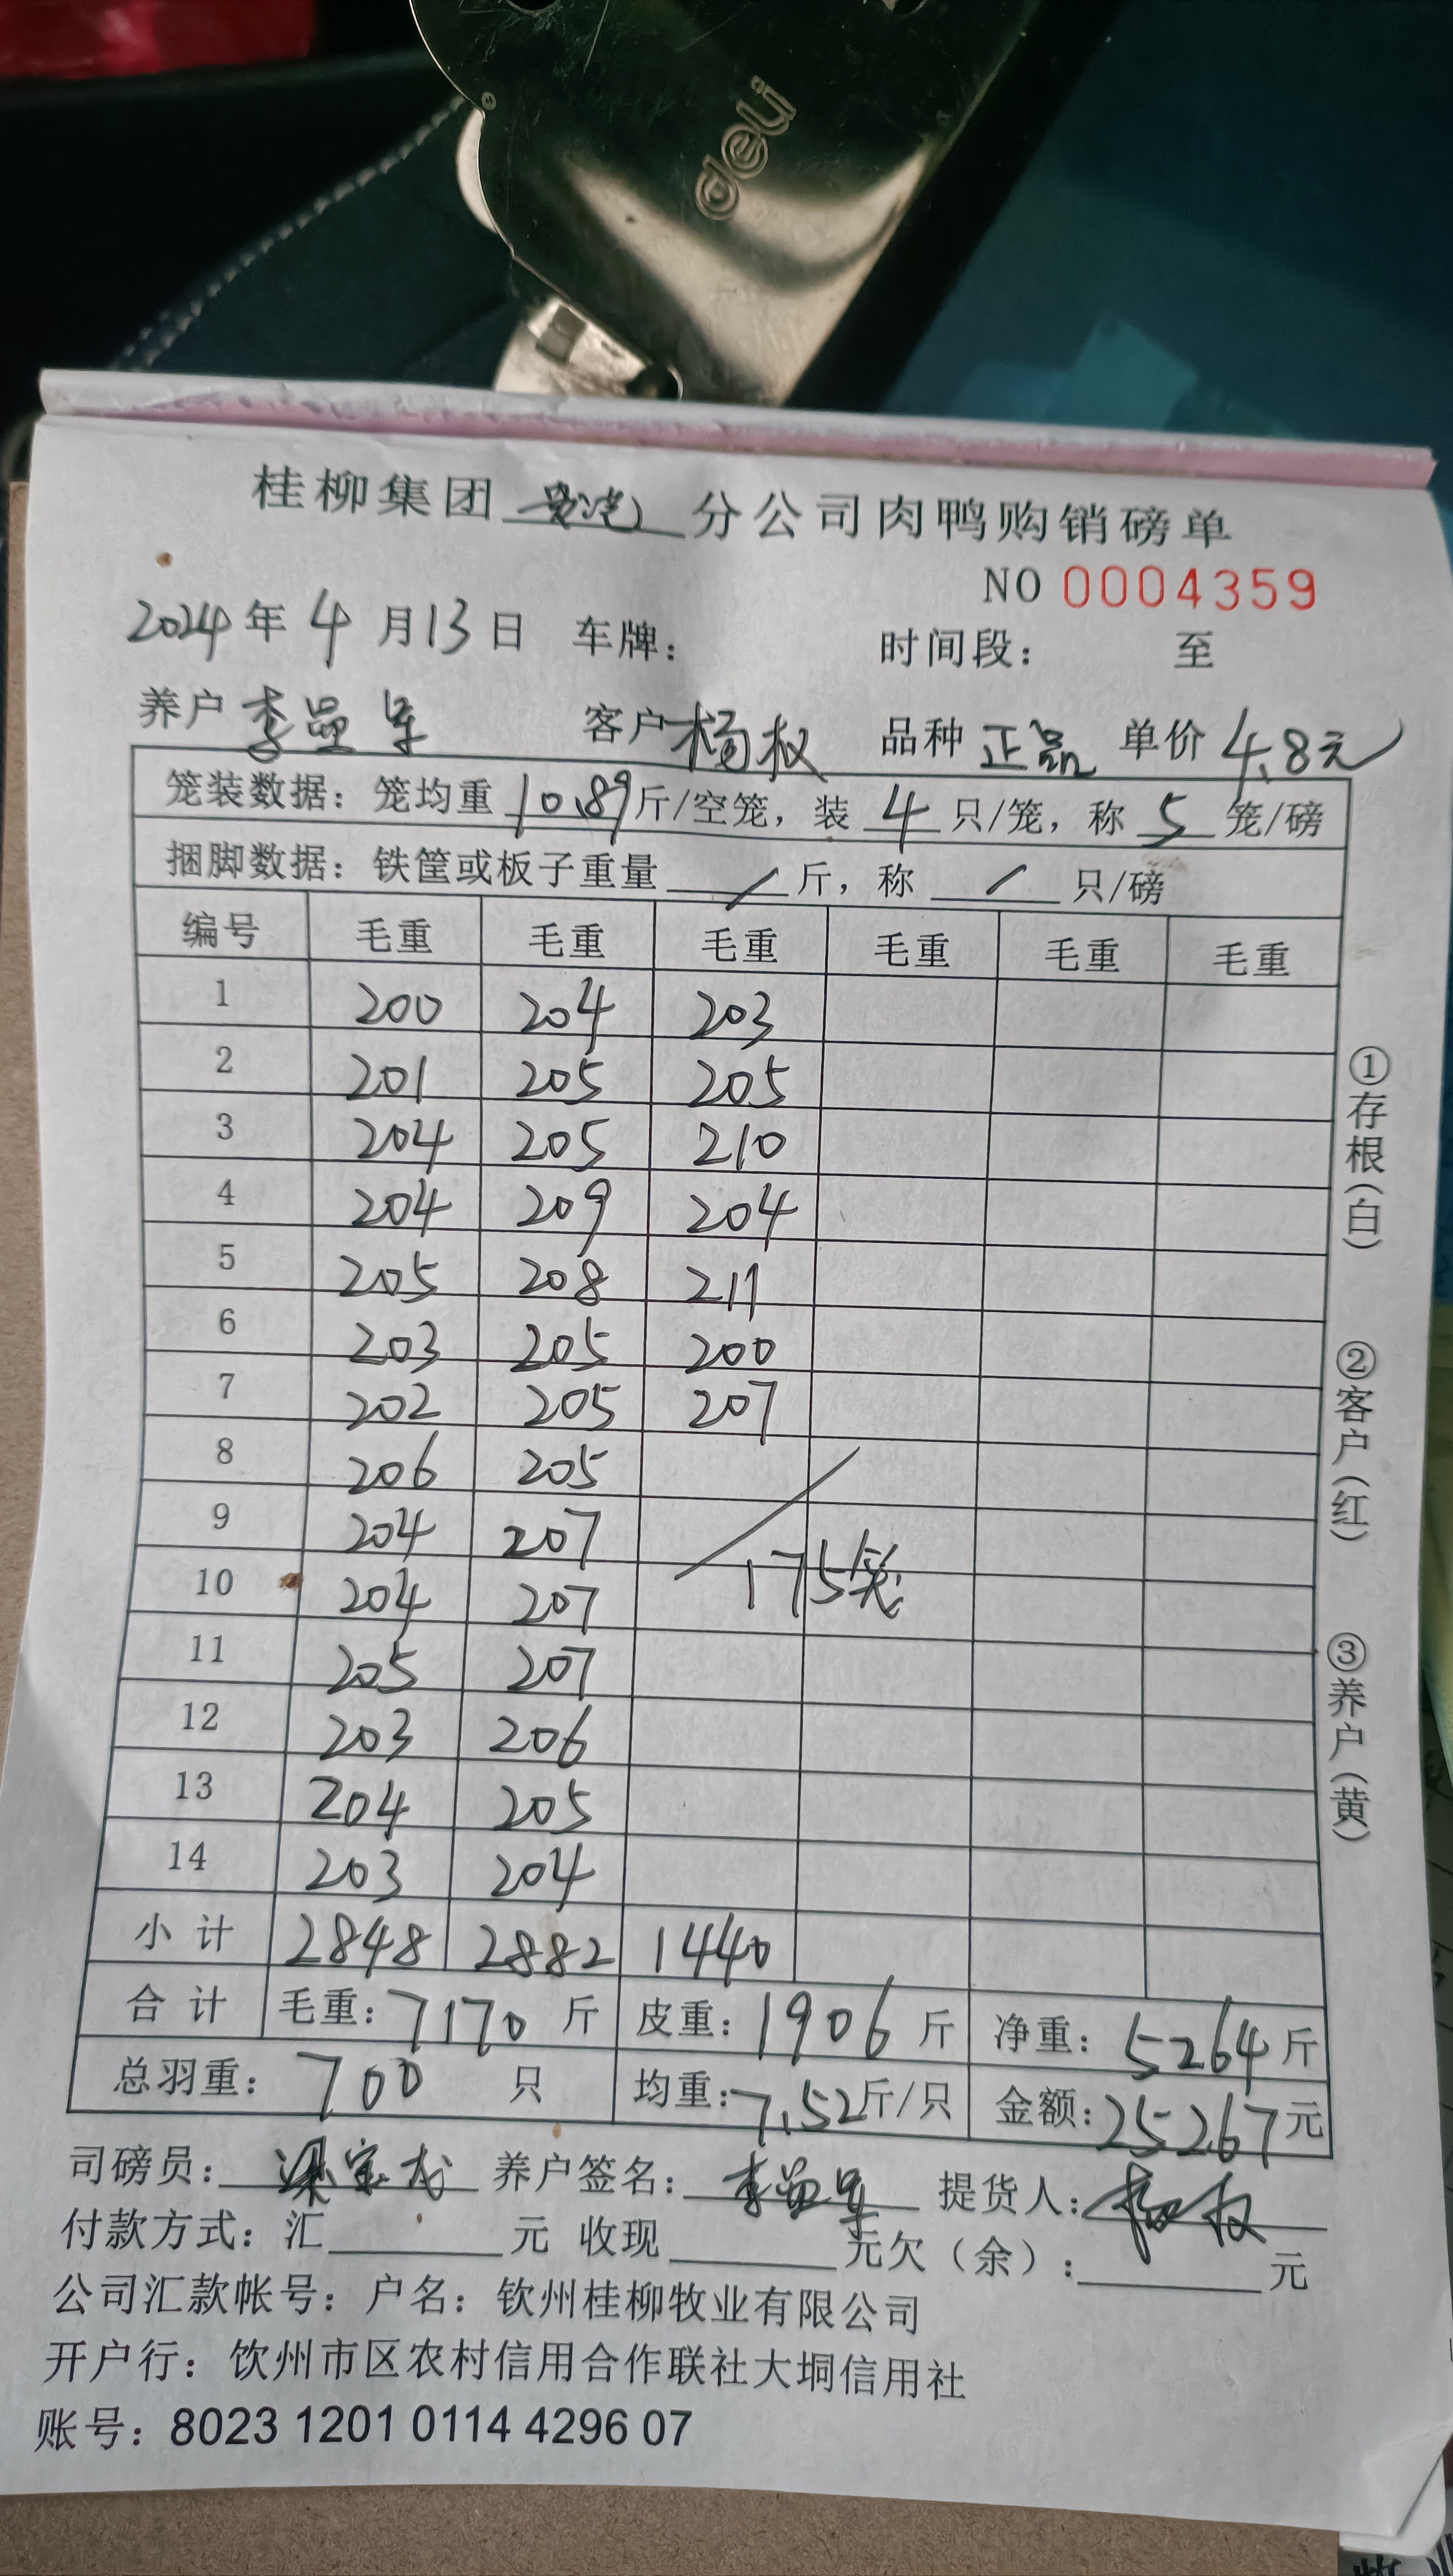 deli
桂柳集团 分公司肉鸭购销磅单
NO 0004359
2024年4月13日 车牌： 时间段： 至
养户 李 军 客户 杨权 品种 正品 单价 4.8元
笼装数据：笼均重 10.89 斤/空笼，装 4 只/笼，称 5 笼/磅
捆脚数据：铁筐或板子重量 / 斤，称 / 只/磅
编号 毛重 毛重 毛重 毛重 毛重 毛重
1 200 204 203
2 201 205 205
3 204 205 210
4 204 209 204
5 205 208 211
6 203 205 200
7 202 205 207
8 206 205
9 204 207
175笼
10 204 207
11 205 207
12 203 206
13 204 205
14 203 204
小计 2848 2882 1440
合计 毛重：7170 斤 皮重：1906 斤 净重：5264 斤
总羽重：700 只 均重：7.52 斤/只 金额：25267 元
司磅员： 养户签名：李 军 提货人：杨权
付款方式：汇 元 收现 元欠（余）： 元
公司汇款帐号：户名：钦州桂柳牧业有限公司
开户行：饮州市区农村信用合作联社大垌信用社
账号：8023 1201 0114 4296 07
①存根（白）
②客户（红）
③养户（黄）